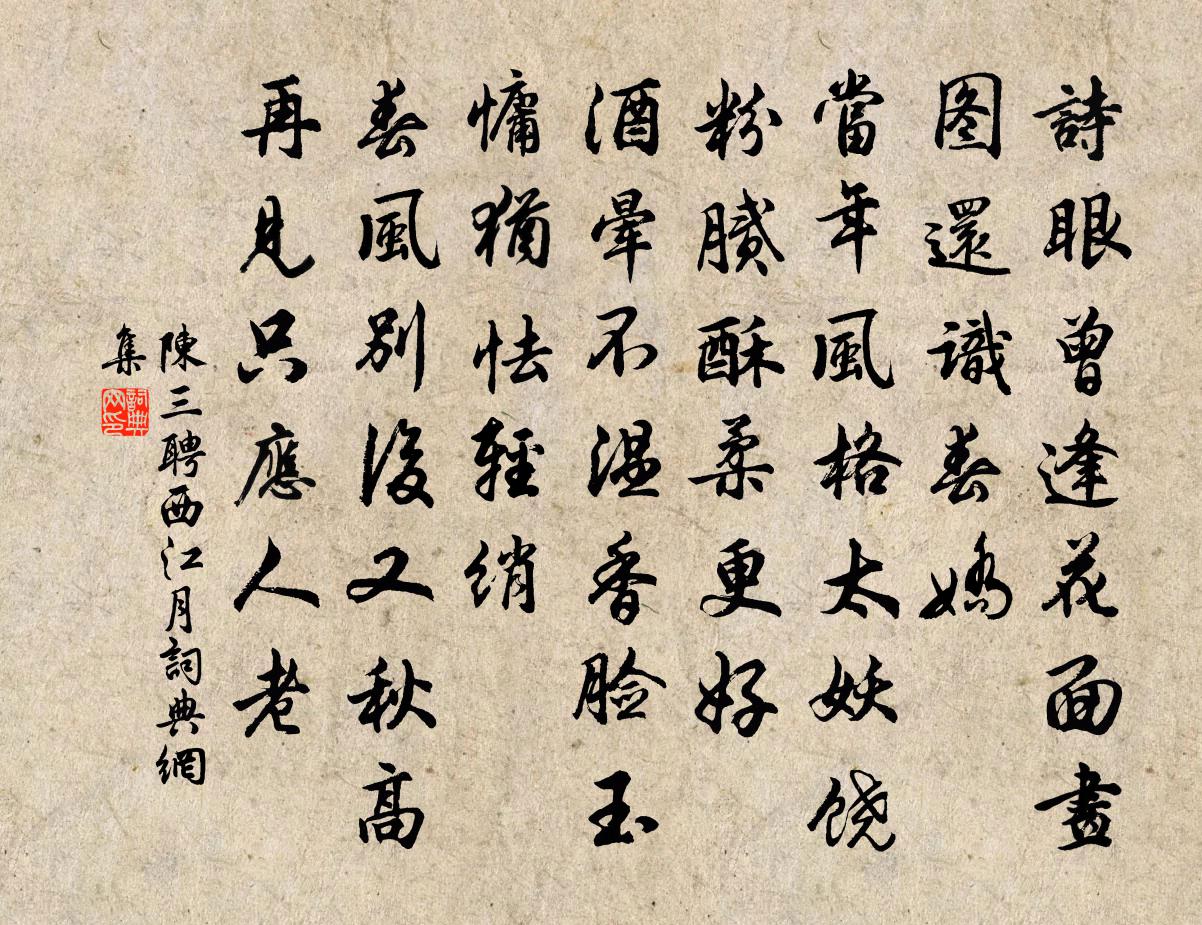 詩眼曾逢花面畫
图還識春嬌
當年風格太妖饶
粉膩酥柔更好
酒暈不温香脸玉
慵猶怯輕綃
春風別後又秋高
再見只應人老
陳三聘西江月詞典網
集
詞典
网印